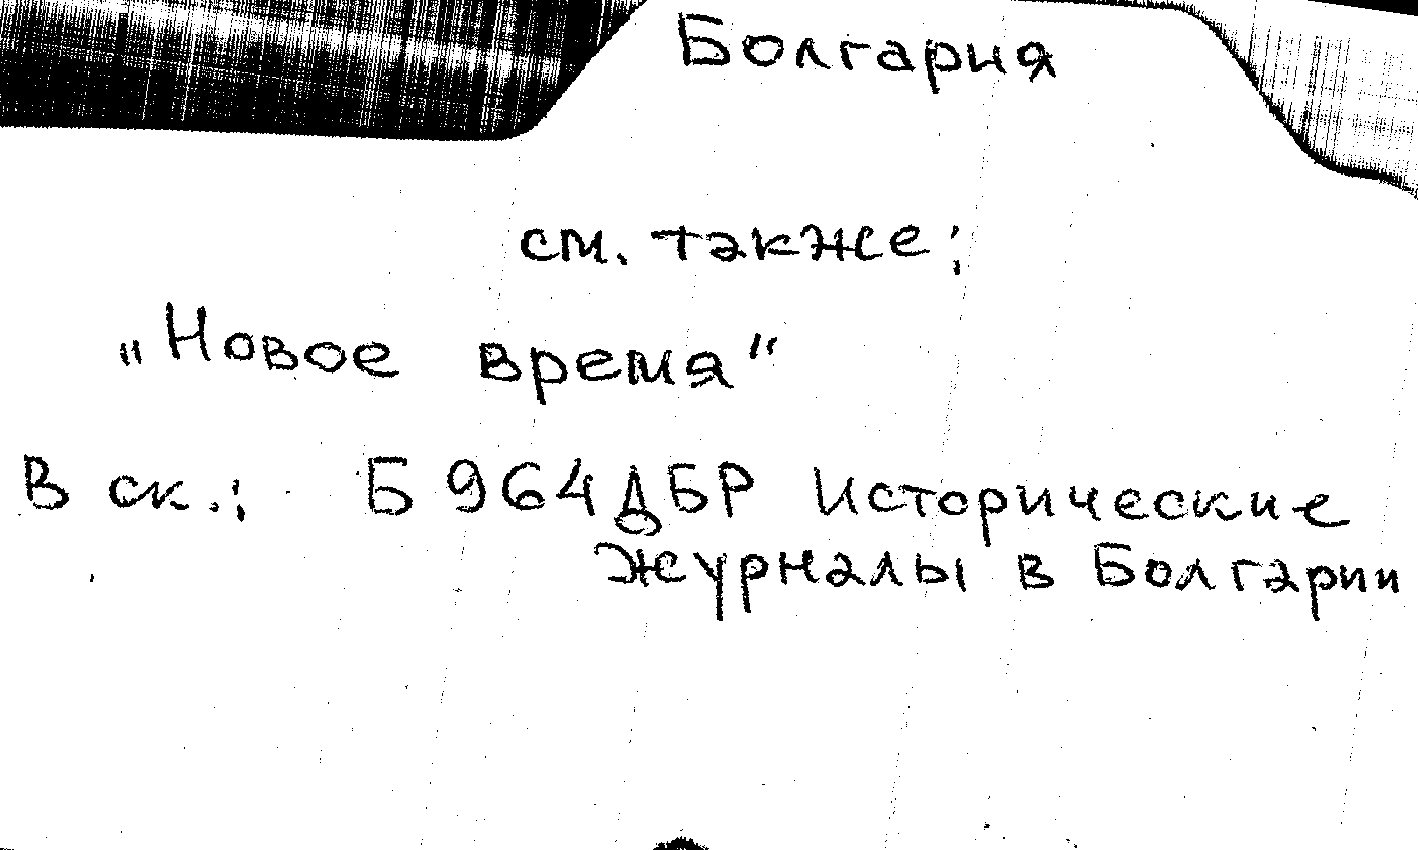 Болгария
см. также:
„Новое время“
В ск.: Б964ДБР Исторические
журналы в Болгарии